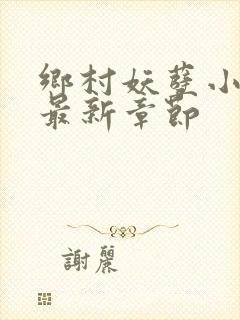 鄉村妖孽小
最新章節
謝麗